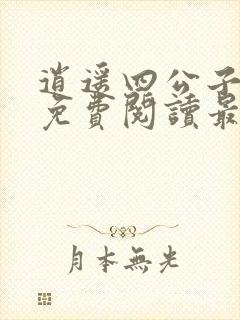 逍遥四公子
免費閱讀最
月本無光